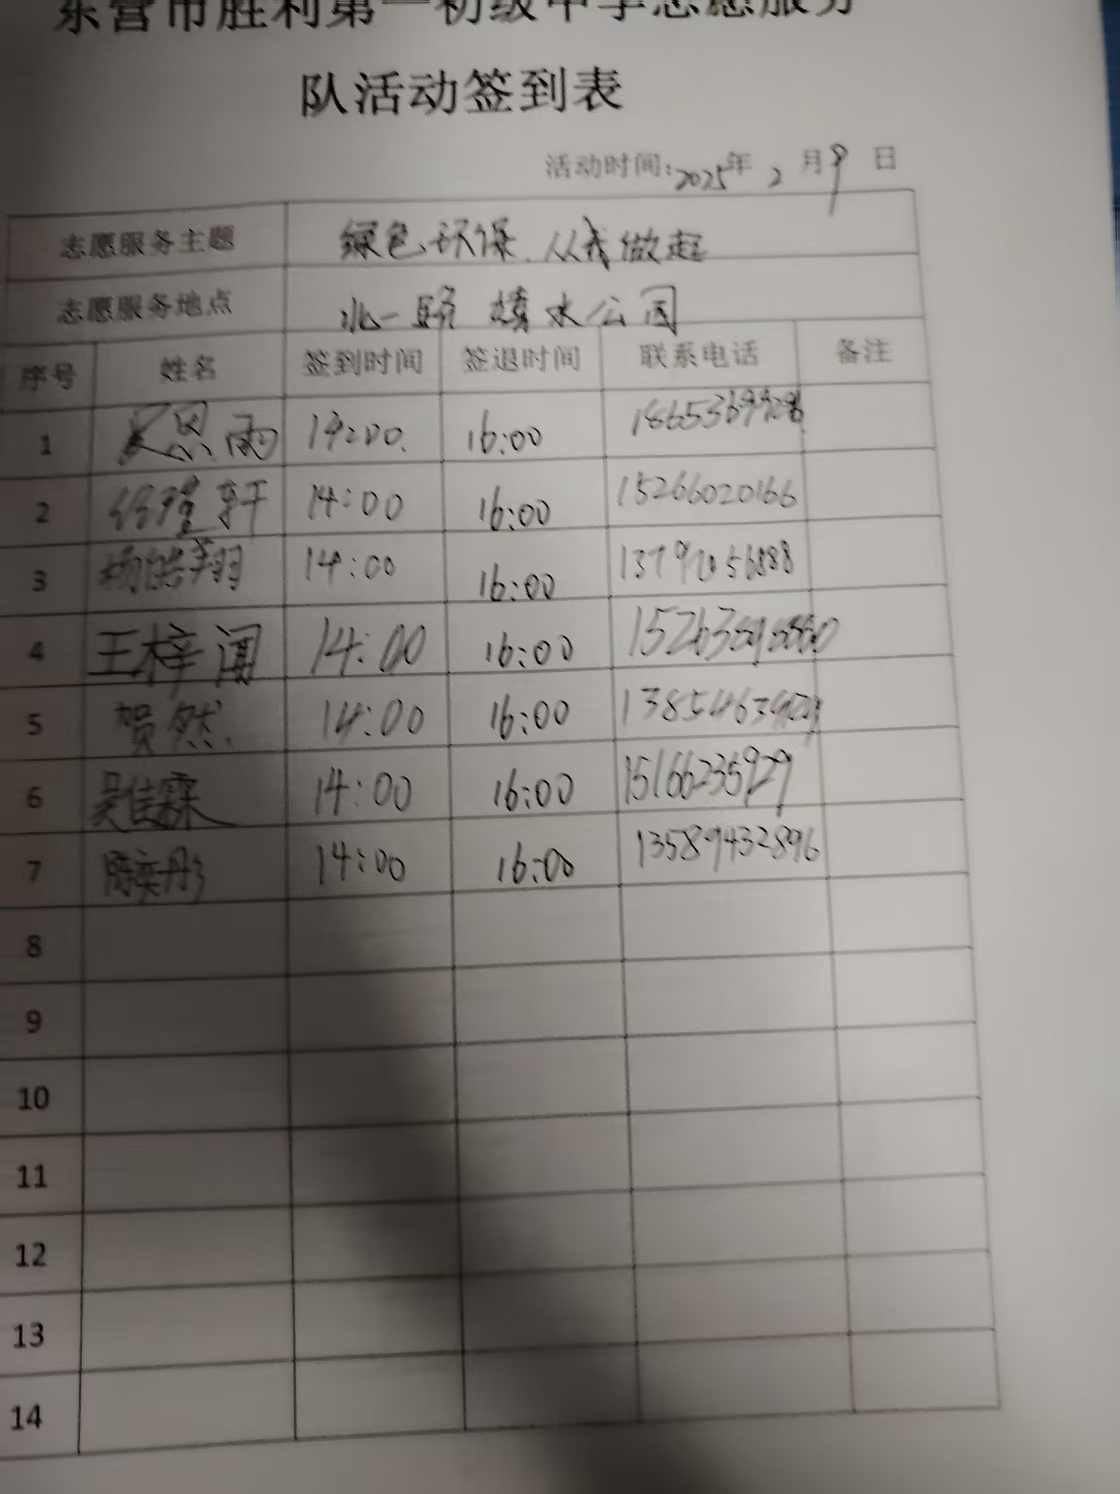 东营市胜利第一初级中学志愿服务
队活动签到表
活动时间:2025年2月9日
志愿服务主题 绿色环保.从我做起
志愿服务地点 北一路 水公园
序号 姓名 签到时间 签退时间 联系电话 备注
1 思雨 14:00. 16:00
2 轩 14:00 16:00 15266020166
3 杨皓翔 14:00 16:00
4 王梓闻 14:00 16:00
5 贺然. 14:00 16:00
6 吴佳霖 14:00 16:00 15166235929
7 陈奕彤 14:00 16:00 13589432896
8
9
10
11
12
13
14